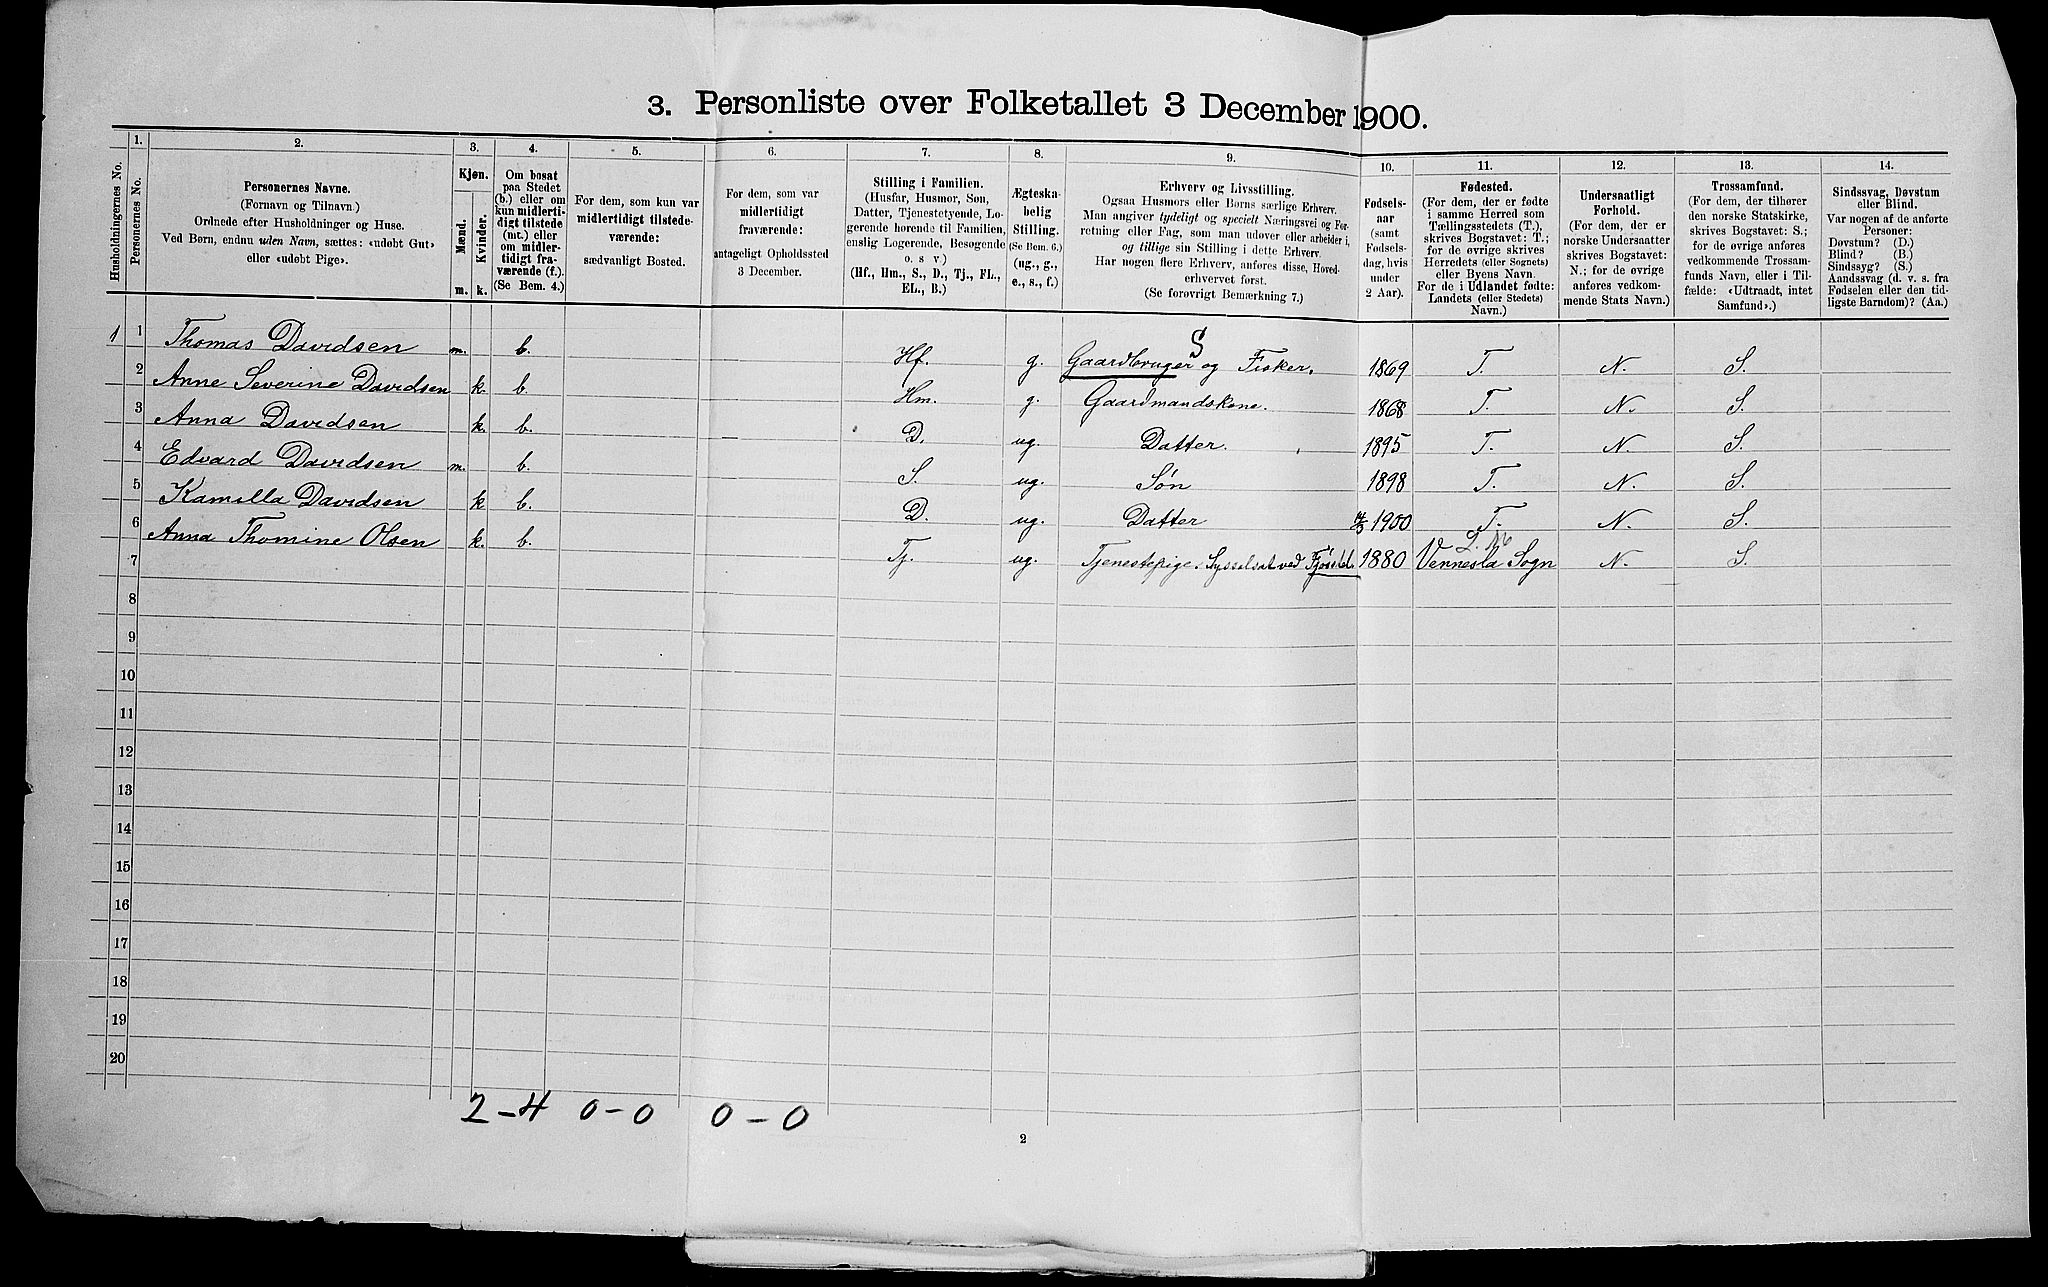 3. Personliste over Folketallet 3 December 1900.
Husholdningernes No.
1.
Personernes No.
2.
Personernes Navne.
(Fornavn og Tilnavn.)
Ordnede efter Husholdninger og Huse.
Ved Børn, endnu uden Navn, sættes: «udøbt Gut»
eller «udøbt Pige».
3.
Kjøn.
Mænd.
Kvinder.
m. k.
4.
Om bosat
paa Stedet
(b.) eller om
kun midlerti-
digt tilstede
(mt.) eller
om midler-
tidigt fra-
værende (f.).
(Se Bem. 4.)
5.
For dem, som kun var
midlertidigt tilstede-
værende:
sædvanligt Bosted.
6.
For dem, som var
midlertidigt
fraværende:
antageligt Opholdssted
3 December.
7.
Stilling i Familien.
(Husfar, Husmor, Søn,
Datter, Tjenestetyende, Lo-
gerende hørende til Familien,
enslig Logerende, Besøgende
o. s v.)
(Hf., Hm., S., D., Tj., FL.,
EL., B.)
8.
Ægteska-
belig
Stilling.
(Se Bem. 6.)
(ug., g.,
e., s., f.)
9.
Erhverv og Livsstilling.
Ogsaa Husmors eller Børns særlige Erhverv.
Man angiver tydeligt og specielt Næringsvei og For-
retning eller Fag, som man udøver eller arbeider i,
og tillige sin Stilling i dette Erhverv.
Har nogen flere Erhverv, anføres disse, Hoved-
erhvervet først.
(Se forøvrigt Bemærkning 7.)
10.
Fødsels-
aar
(samt
Fødsels-
dag, hvis
under
2 Aar).
11.
Fødested.
(For dem, der er fødte
i samme Herred som
Tællingsstedets (T.),
skrives Bogstavet: T.;
for de øvrige skrives
Herredets (eller Sognets)
eller Byens Navn.
For de i Udlandet fødte:
Landets (eller Stedets)
Navn.)
12.
Undersaatligt
Forhold.
(For dem, der er
norske Undersaatter
skrives Bogstavet:
N.; for de øvrige
anføres vedkom-
mende Stats Navn.)
13.
Trossamfund.
(For dem, der tilhører
den norske Statskirke,
skrives Bogstavet: S.;
for de øvrige anføres
vedkommende Trossam-
funds Navn, eller i Til-
fælde: «Udtraadt, intet
Samfund».)
14.
Sindssvag, Døvstum
eller Blind.
Var nogen af de anførte
Personer:
Døvstum? (D.)
Blind? (B.)
Sindssyg? (S.)
Aandssvag (d. v. s. fra
Fødselen eller den tid-
ligste Barndom)? (Aa.)
S
1 1 Thomas Davidsen m. b. Hf. g. Gaardbruger og Fisker. 1869 T. N. S.
2 Anne Severine Davidsen k. b. Hm. g. Gaardmandskone. 1868 T. N. S.
3 Anna Davidsen k. b. D. ug. Datter. 1895 T. N. S.
4 Edvard Davidsen m. b. S. ug. Søn 1898 T. N. S.
5 Kamilla Davidsen k b. D. ug. Datter 1900 T. N. S.
6 Anna Thomine Olsen k. b. Tj. ug. Tjenestepige. Sysselsat ved Fjøsstel. 1880 Vennesla Sogn N. S.
7
8
9
10
11
12
13
14
15
16
17
18
19
20
2-4 0-0 0-0
2